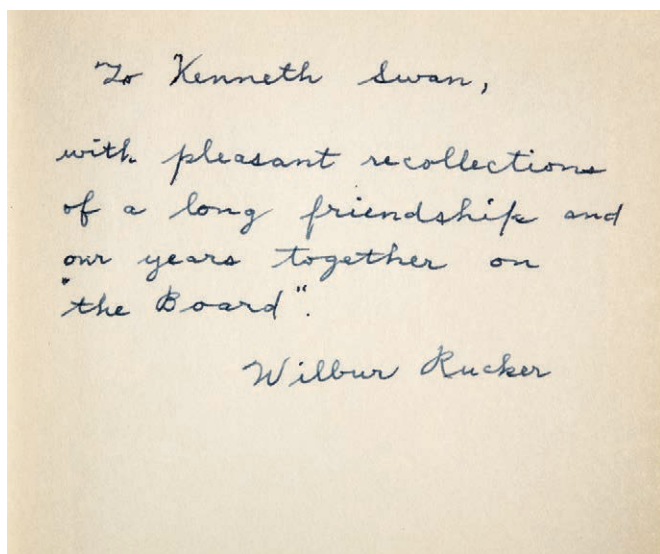 To Kenneth Swan,
with pleasant recollections
of a long friendship and
our years together on
"the Board".
Wilbur Rucker